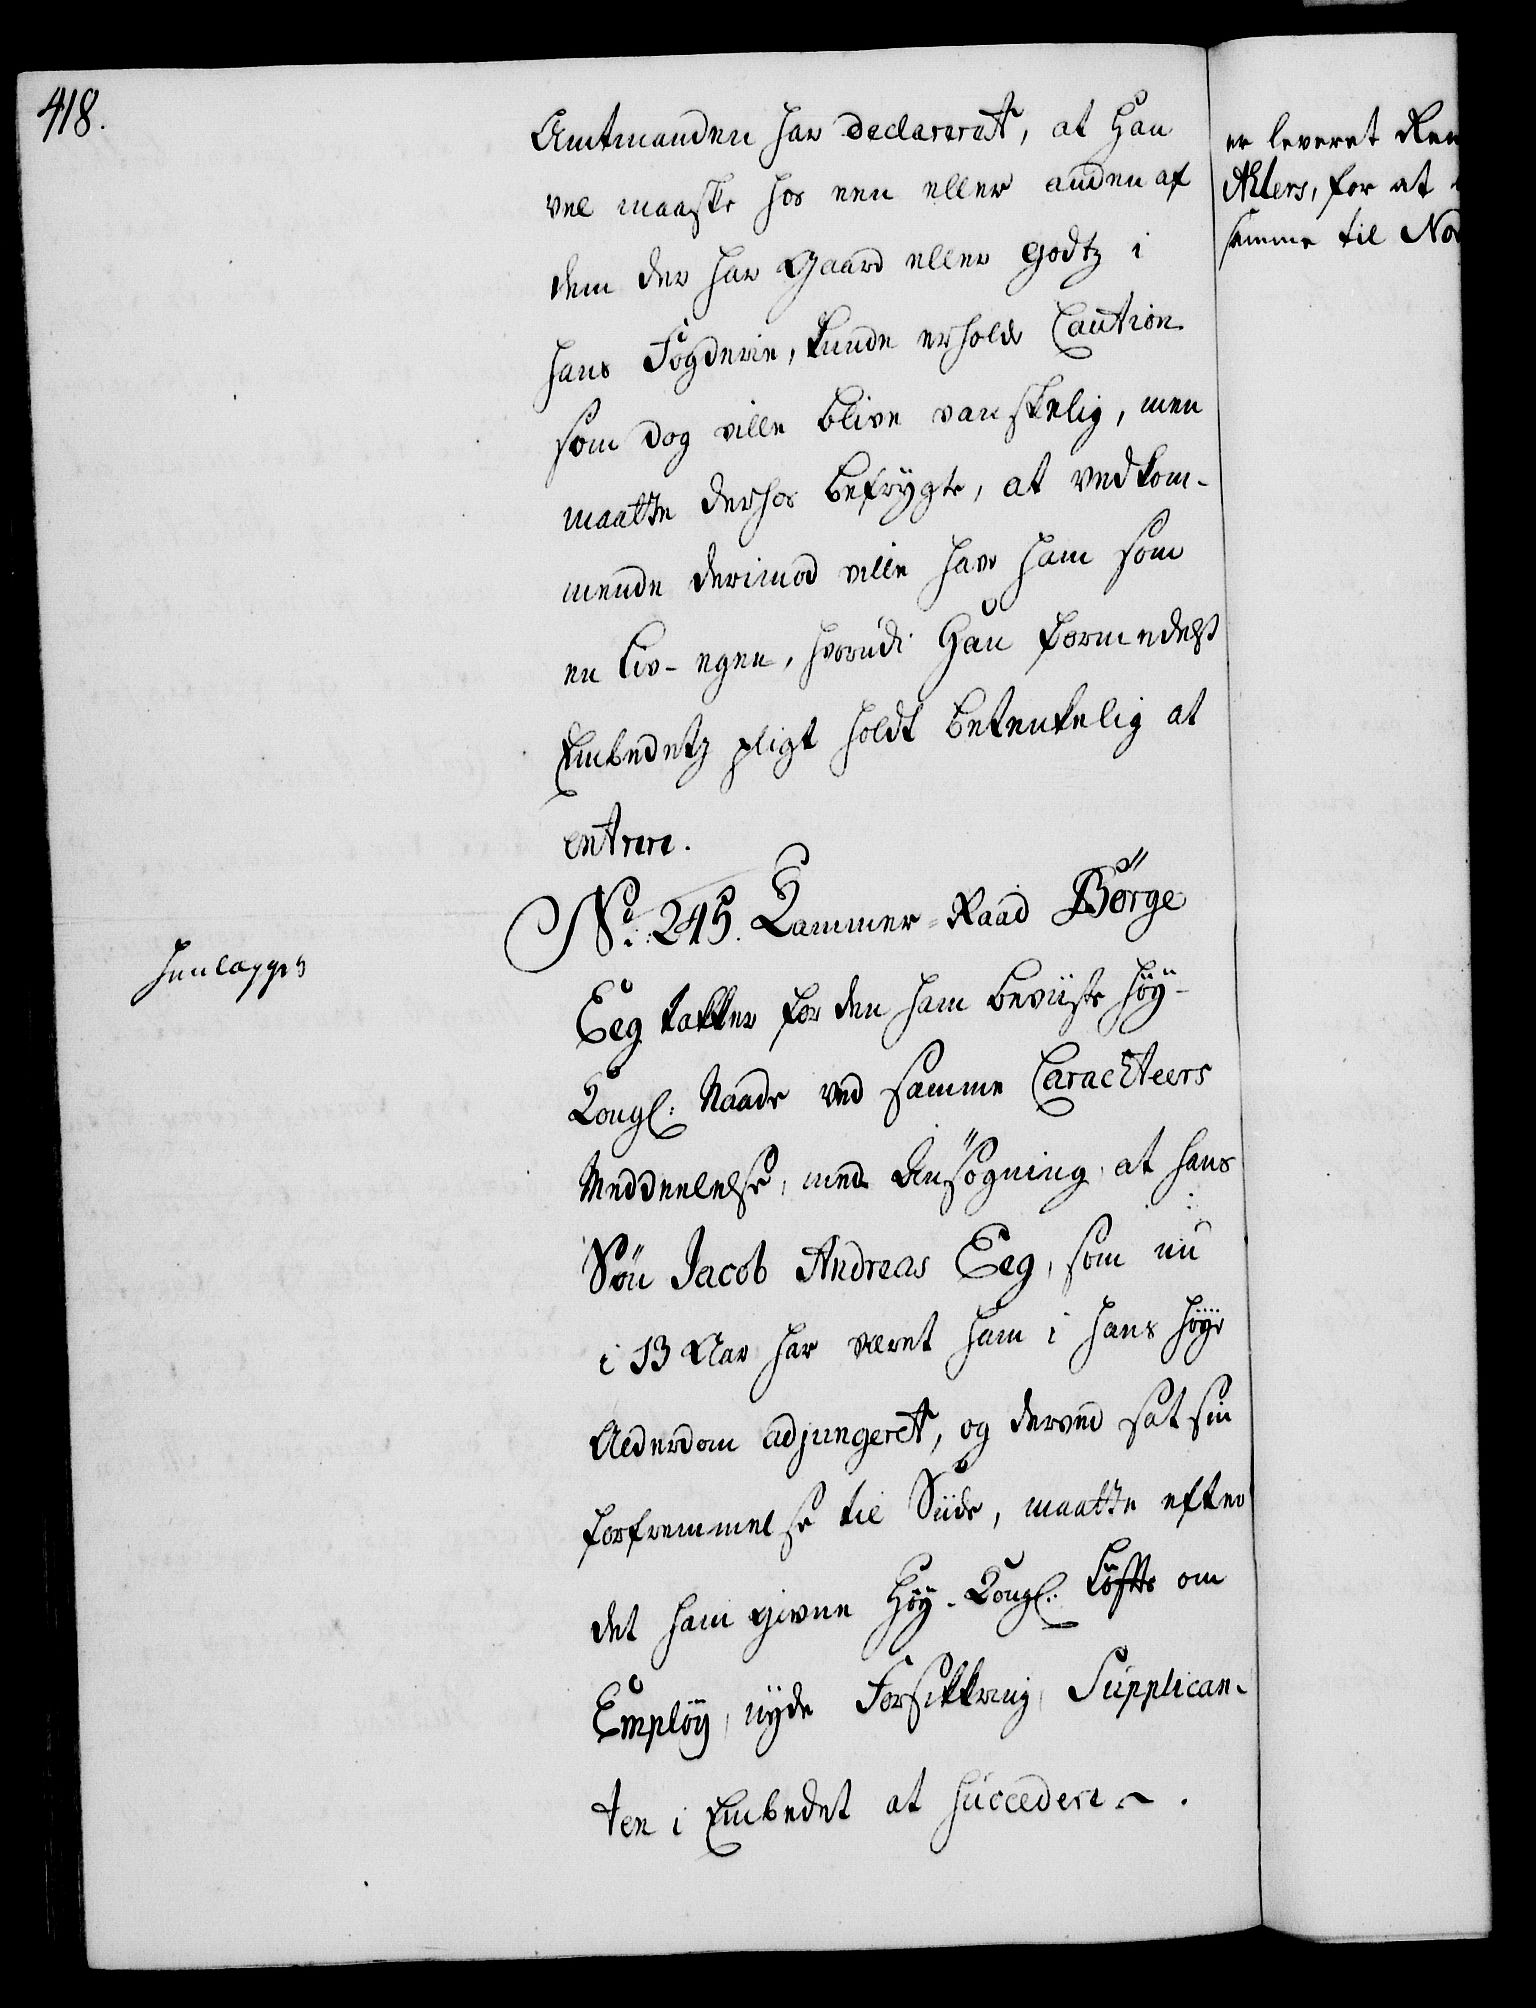 418.
Amtmanden har declareret, at Han
vel maaske hos een eller anden af
dem der har Gaard eller godtz i
hans Fogderie, kunde erholde Caution
som dog ville blive vanskelig, men
maatte derhos befrygte, at vedkom-
mende derimod ville have ham som
en Liv-egen, hvorudi Han formedelst
Embedetz pligt holdt betenkelig at
entrere.
No. 245. Kammer-Raad Börge
Eeg takker for den ham beviiste höy-
Kongl: Naade ved samme Caracteers
Meddeelelse, med Ansögning at hans
Sön Jacob Andreas Eeg, som nu
i 13 Aar har været ham i hans höye
Alderdom adjungeret, og derved sat sin
forfremmelse til Siide, maatte efter
det ham givne Höy-Kongl: Löfte om
Employ, nyde Forsikkring, Supplican-
ten i Embedet at succedere.
Henlægges
er leveret
Ahlers, for at
samme til